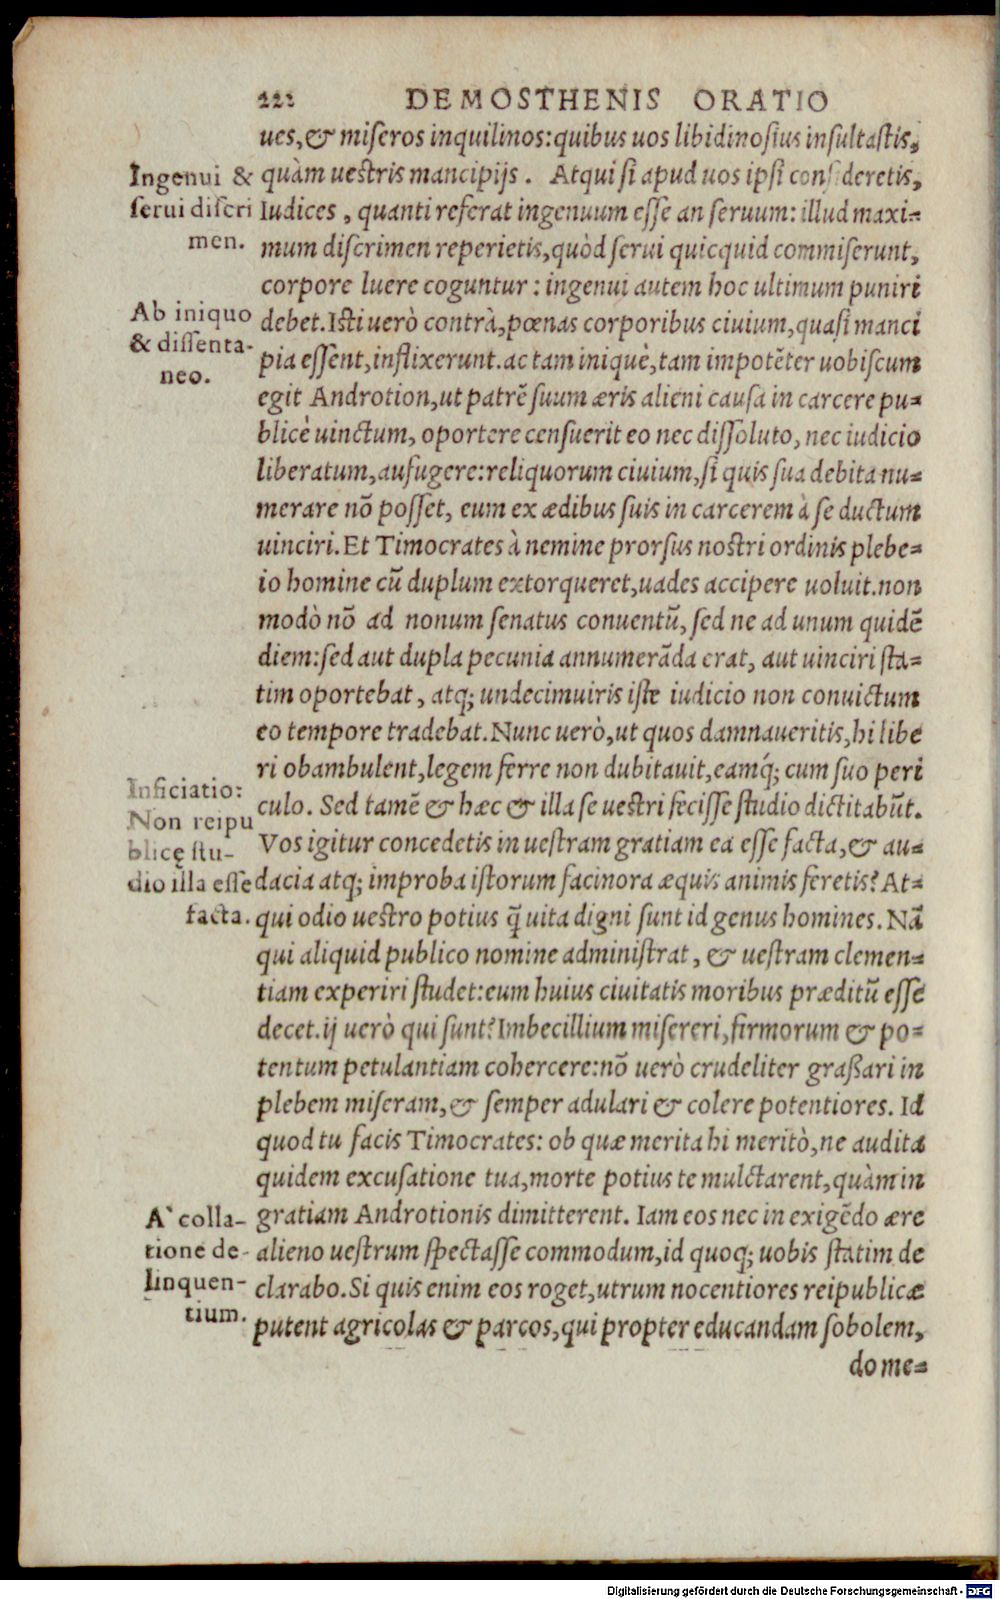 222 DEMOSTHENIS ORATIO
ues, & miseros inquilinos: quibus uos libidinosius insultastis,
quàm uestris mancipijs. Atqui si apud uos ipsi consideretis,
Iudices, quanti referat ingenuum esse an seruum: illud maxi-
mum discrimen reperietis, quòd serui quicquid commiserunt,
corpore luere coguntur: ingenui autem hoc ultimum puniri
debet. Isti uerò contrà, pœnas corporibus ciuium, quasi manci
pia essent, inflixerunt. ac tam iniquè, tam impotẽter uobiscum
egit Androtion, ut patrẽ suum æris alieni causa in carcere pu-
blicè uinctum, oportere censuerit eo nec dissoluto, nec iudicio
liberatum, aufugere: reliquorum ciuium, si quis sua debita nu-
merare nõ posset, eum ex ædibus suis in carcerem à se ductum
uinciri. Et Timocrates à nemine prorsus nostri ordinis plebe-
io homine cũ duplum extorqueret, uades accipere uoluit. non
modò nõ ad nonum senatus conuentũ, sed ne ad unum quidẽ
diem: sed aut dupla pecunia annumerãda erat, aut uinciri sta-
tim oportebat, atq; undecimuiris iste iudicio non conuictum
eo tempore tradebat. Nunc uerò, ut quos damnaueritis, hi libe
ri obambulent, legem ferre non dubitauit, eamq́; cum suo peri
culo. Sed tamẽ & hæc & illa se uestri fecisse studio dictitabũt.
Vos igitur concedetis in uestram gratiam ea esse facta, & au-
dacia atq; improba istorum facinora æquis animis feretis? At-
qui odio uestro potius q̃ uita digni sunt id genus homines. Nã
qui aliquid publico nomine administrat, & uestram clemen-
tiam experiri studet: eum huius ciuitatis moribus præditũ esse
decet. ij uerò qui sunt? Imbecillium misereri, firmorum & po-
tentum petulantiam cohercere: nõ uerò crudeliter graßari in
plebem miseram, & semper adulari & colere potentiores. Id
quod tu facis Timocrates: ob quæ merita hi meritò, ne audita
quidem excusatione tua, morte potius te mulctarent, quàm in
gratiam Androtionis dimitterent. Iam eos nec in exigẽdo ære
alieno uestrum spectasse commodum, id quoq; uobis statim de
clarabo. Si quis enim eos roget, utrum nocentiores reipublicæ
putent agricolas & parcos, qui propter educandam sobolem,
dome-
Ingenui &
serui discri
men.
Ab iniquo
& dissenta-
neo.
Inficiatio:
Non reipu
blicę stu-
dio illa esse
facta.
A` colla-
tione de-
linquen-
tium.
Digitalisierung gefördert durch die Deutsche Forschungsgemeinschaft - DFG